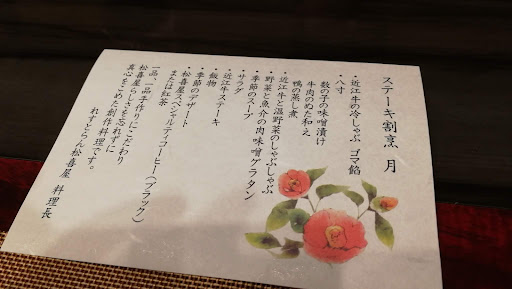 ステーキ割烹 月
・近江牛の冷しゃぶ ゴマ餡
・八寸
数の子の味噌漬け
牛肉のぬた和え
鴨の蒸し煮
・近江牛と温野菜のしゃぶしゃぶ
・野菜と魚介の肉味噌グラタン
・季節のスープ
・サラダ
・近江牛ステーキ
・飯物
・季節のデザート
・松喜屋スペシャルティコーヒー(ブラック)
または紅茶
一品、一品手作りにこだわり
松喜屋らしさを忘れずに
真心をこめた創作料理です。
れすとらん松喜屋 料理長